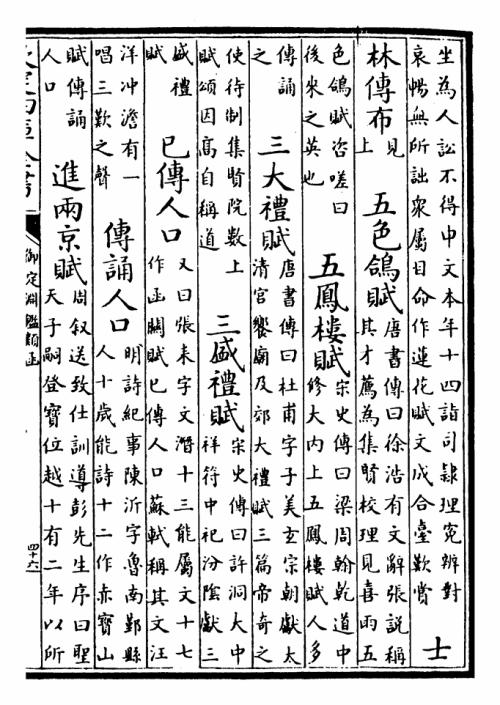 坐為人訟不得申文本年十四詣司隸理寃辨對
哀暢無所詘衆屬目命作蓮花賦文成合臺歎賞
士
林傳布
見
上
五色鴿賦
唐書傳曰徐浩有文辭張說稱
其才薦為集賢校理見喜雨五
色鴿賦咨嗟曰
後來之英也
五鳳樓賦
宋史傳曰梁周翰乾道中
修大内上五鳳樓賦人多
傳誦
之
三大禮賦
唐書傳曰杜甫字子美玄宗朝獻太
清宫饗廟及郊大禮賦三篇帝奇之
使待制集賢院數上
賦頌因高自稱道
三盛禮賦
宋史傳曰許洞大中
祥符中祀汾陰獻三
盛禮
賦
已傳人口
又曰張耒字文潛十三能屬文十七
作函關賦已傳人口蘇軾稱其文汪
洋冲澹有一
唱三歎之聲
傳誦人口
明詩紀事陳沂字魯南鄞縣
人十歲能詩十二作赤寶山
賦傳誦
人口
進兩京賦
周叙送致仕訓導彭先生序曰聖
天子嗣登寶位越十有二年以所
御定淵鑑類函
四十六